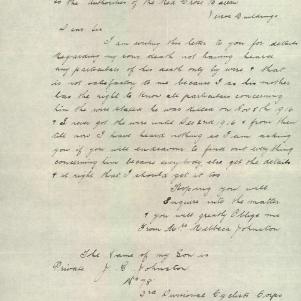 to the Authorities of the Red Cross Bureau
Verdon Buildings
Dear Sir
I am writing this letter to you for details
Regarding my sons death not having heard
any particulars of his death only by wire & that
is not satisfactory to me because I as his mother
has the right to know all particulars concerning
him the wire states he was killed on Nov 8th 1916
& I never got the wire until Dec 2nd 1916 & from then
till now I have heard nothing so I am asking
you if you will endeavour to find out everything
concerning him because everybody else get the details
& it right that I should get it too
Hoping you will
Inquire into the matter
& you will greatly Oblige me
From Mrs Rebbeca Johnston
The Name of my Son is
Private J. E Johnston
No 78
3rd Divisional Cyclists Corps